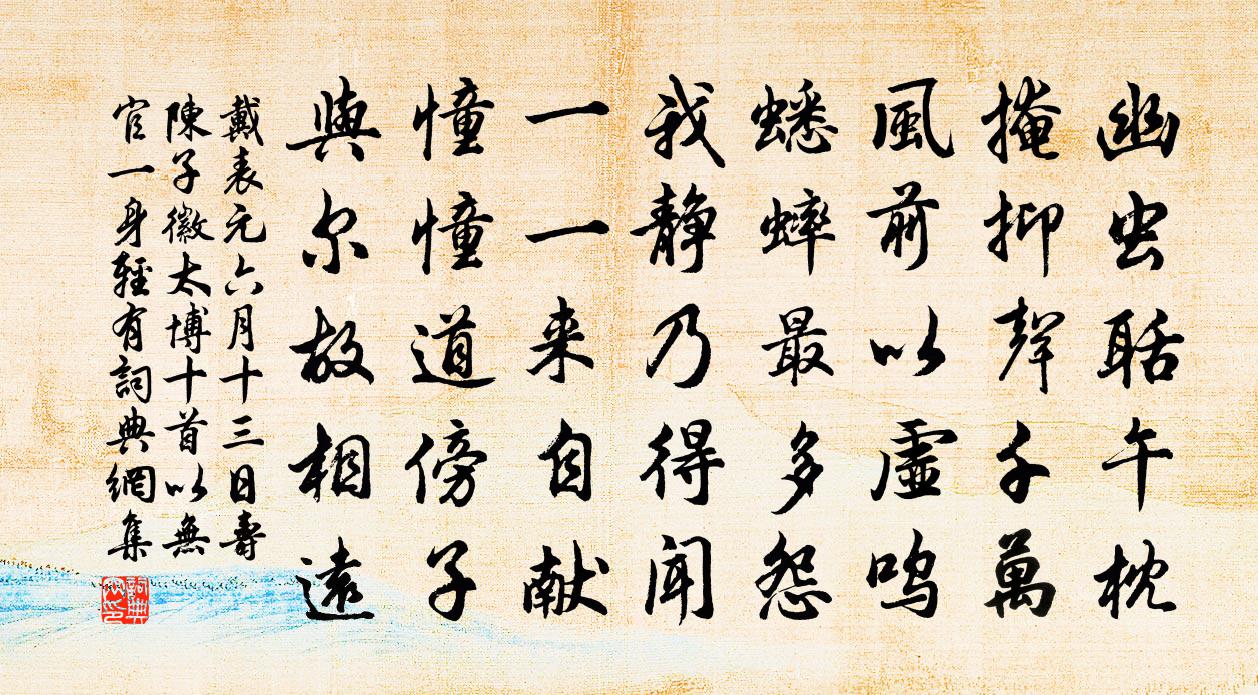 幽虫聒午枕
掩抑聲千萬
風前以虛鳴
蟋蟀最多怨
我静乃得聞
一一来自献
憧憧道傍子
與尔故相遠
戴表元六月十三日壽
陳子徽太博十首以無
官一身輕有詞典網集